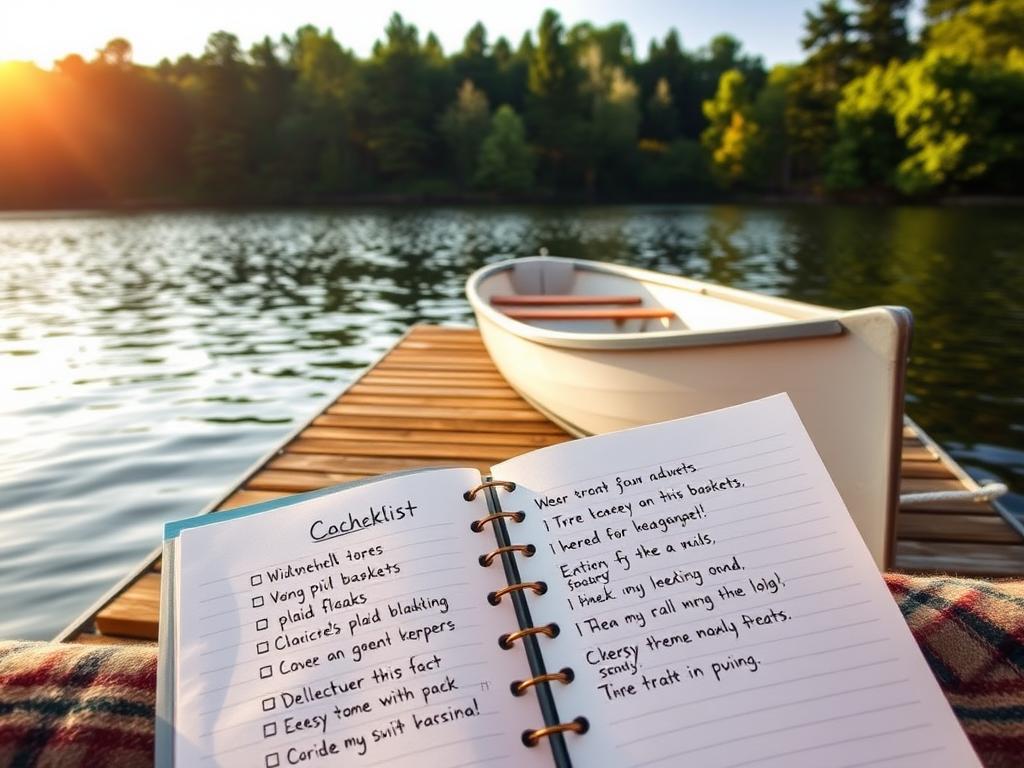 Cocheklist
Widwnehell tores
Vong pill baskets
plaid flaaks
Claricre's plaid bladkting
Covee an geent kerpers
Dellectuer this fact
Eeesy tome with pack
Coride my swit karsina!
Wesr trant faur advets
I Tree kacey an this baskets,
I hered for keaganpat!
Eatien fy the a wils,
I my leeking ond,
I Thea my rall wrng the logl,
Chersy theme nawly feats.
Thre tratt in pving.